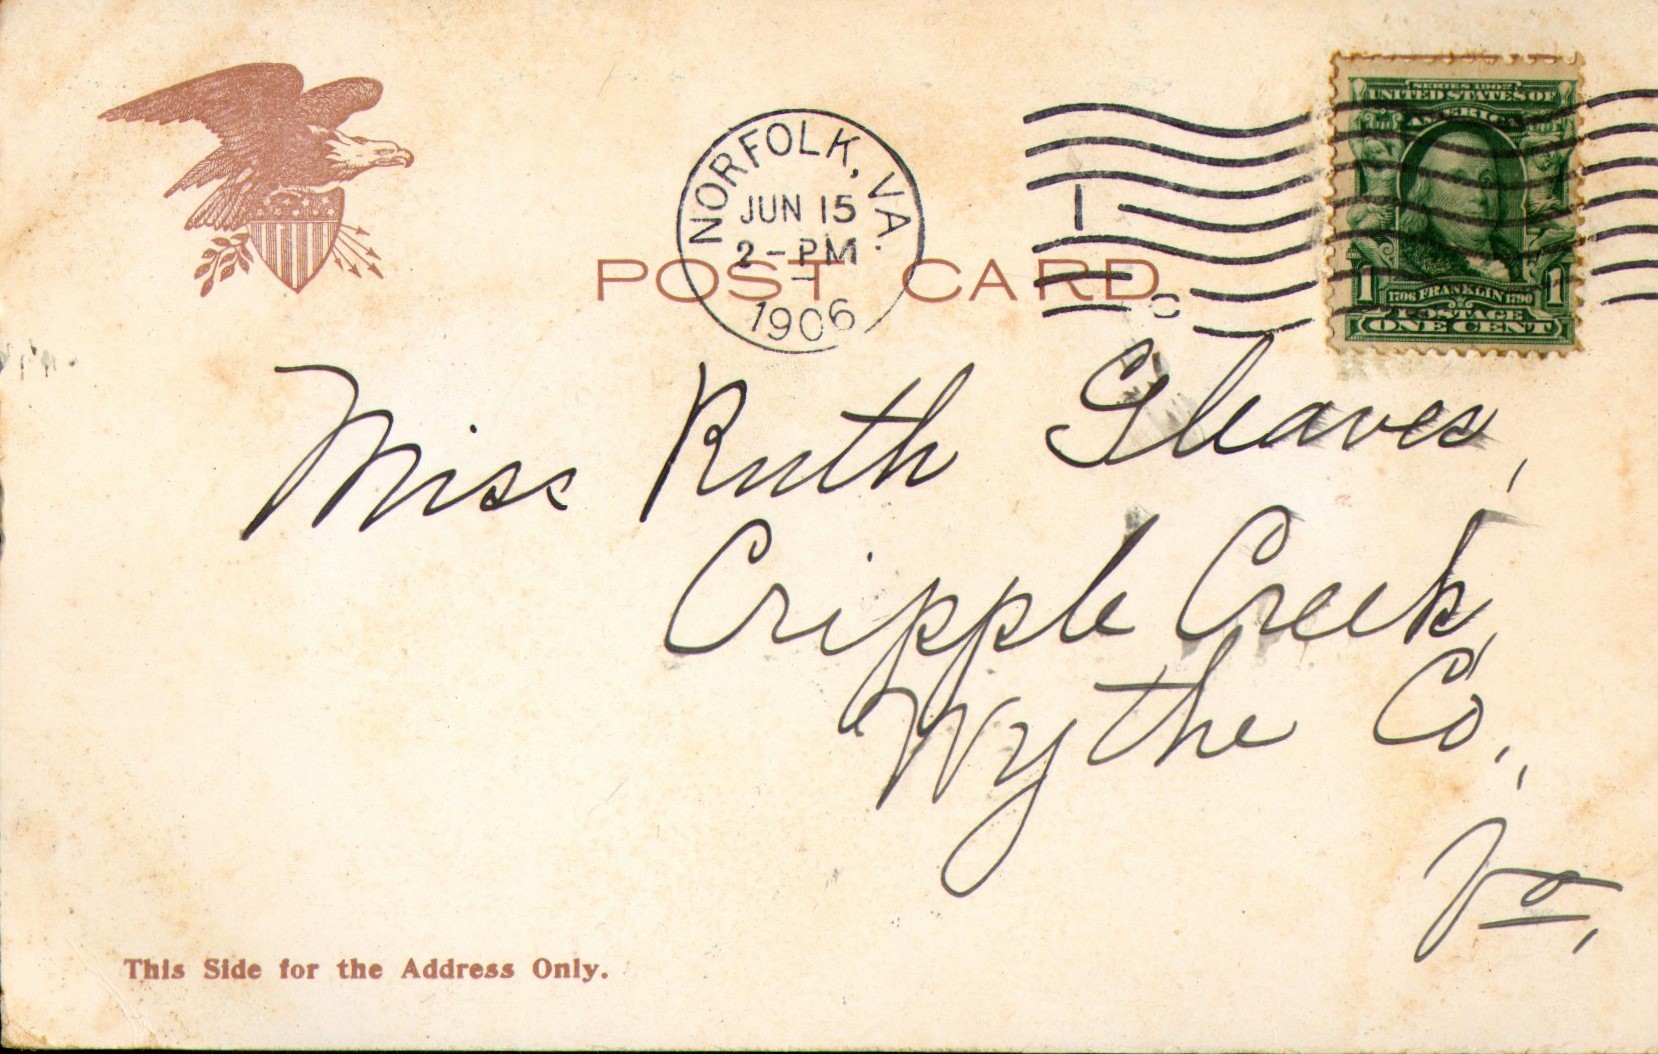 NORFOLK, VA.
JUN 15
2-PM
1906
1
C
SERIES 1902
UNITED STATES OF
AMERICA
1 1706 FRANKLIN 1790 1
POSTAGE
ONE CENT
POST CARD
Miss Ruth Gleaves,
Cripple Creek,
Wythe Co.,
Va,
This Side for the Address Only.